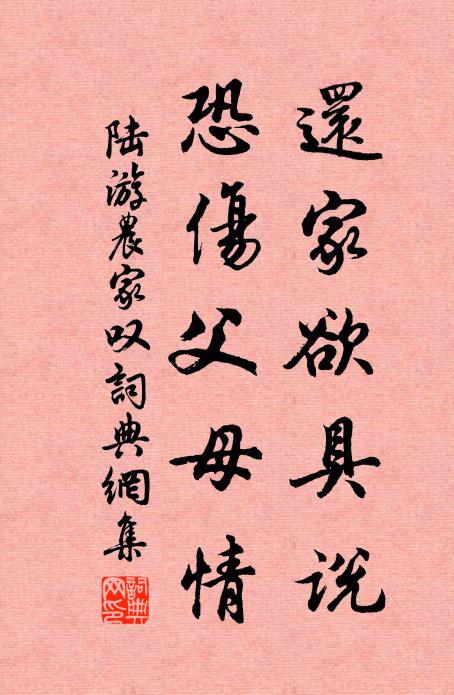 還家欲具說
恐傷父母情
陸游農家叹詞典網集
詞典网印